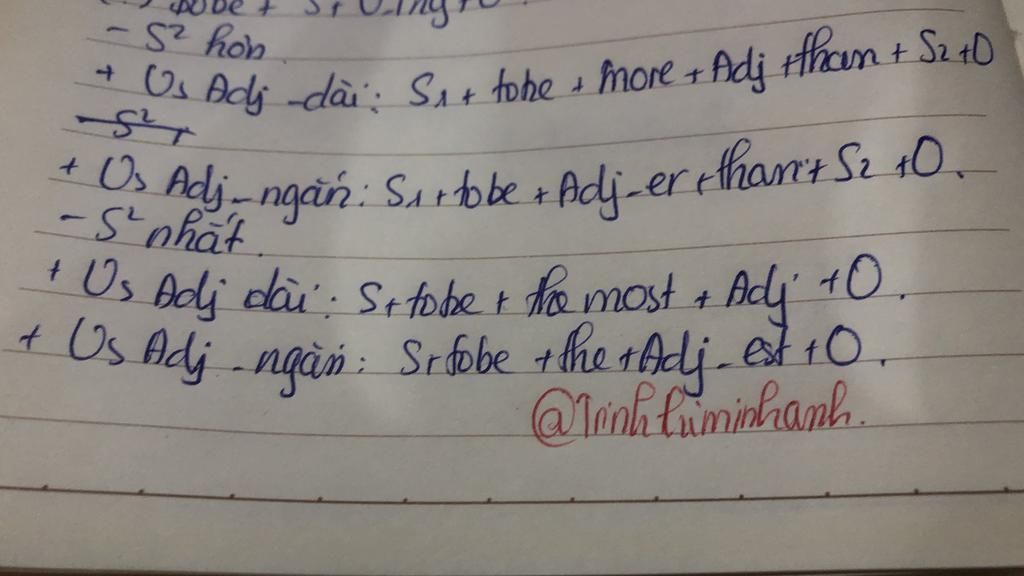 tobe + S + V-ing + O
- S² hơn
+ Vs Adj -dài: S1 + tobe + more + Adj + than + S2 + O
S²
+ Vs Adj - ngắn: S1 + tobe + Adj - er + than + S2 + O.
- S² nhất.
+ Vs Adj dài: S + tobe + the most + Adj + O.
+ Vs Adj - ngắn: S + tobe + the + Adj - est + O.
@Trinhtuminhanh.